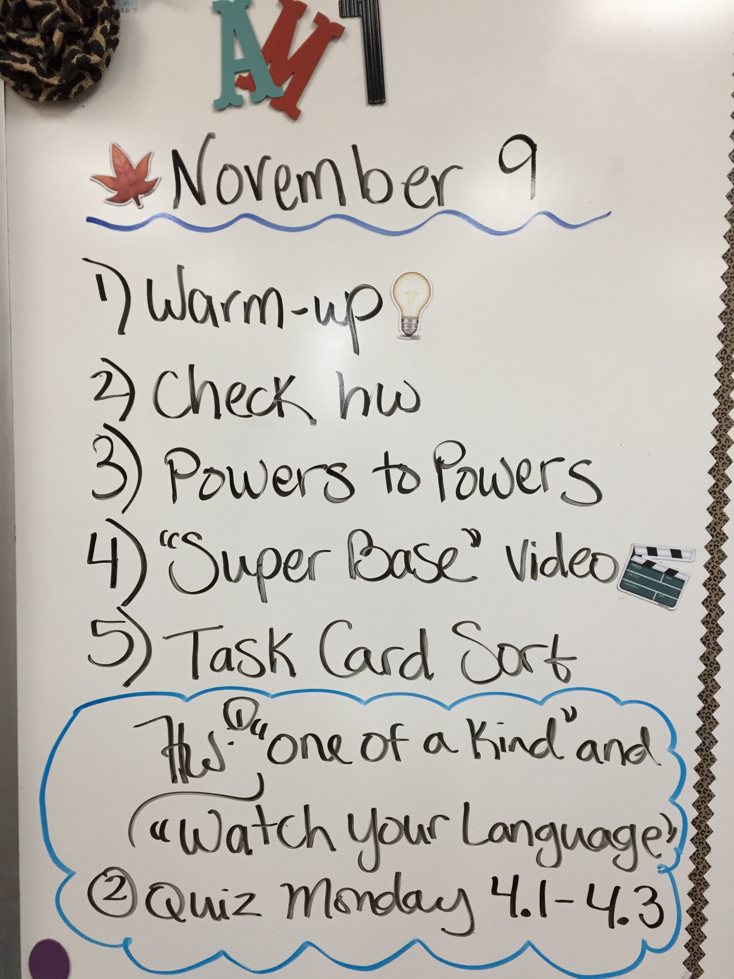 AM1
November 9
1) Warm-up
2) Check hw
3) Powers to Powers
4) "Super Base" video
5) Task Card Sort
HW: ① "one of a Kind" and
"Watch your Language"
② Quiz Monday 4.1-4.3